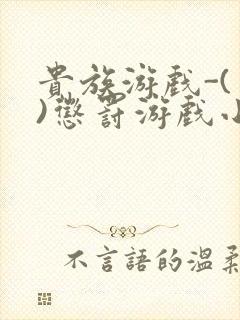 貴族游戲-(
)懲罰游戲小
不言語的溫柔